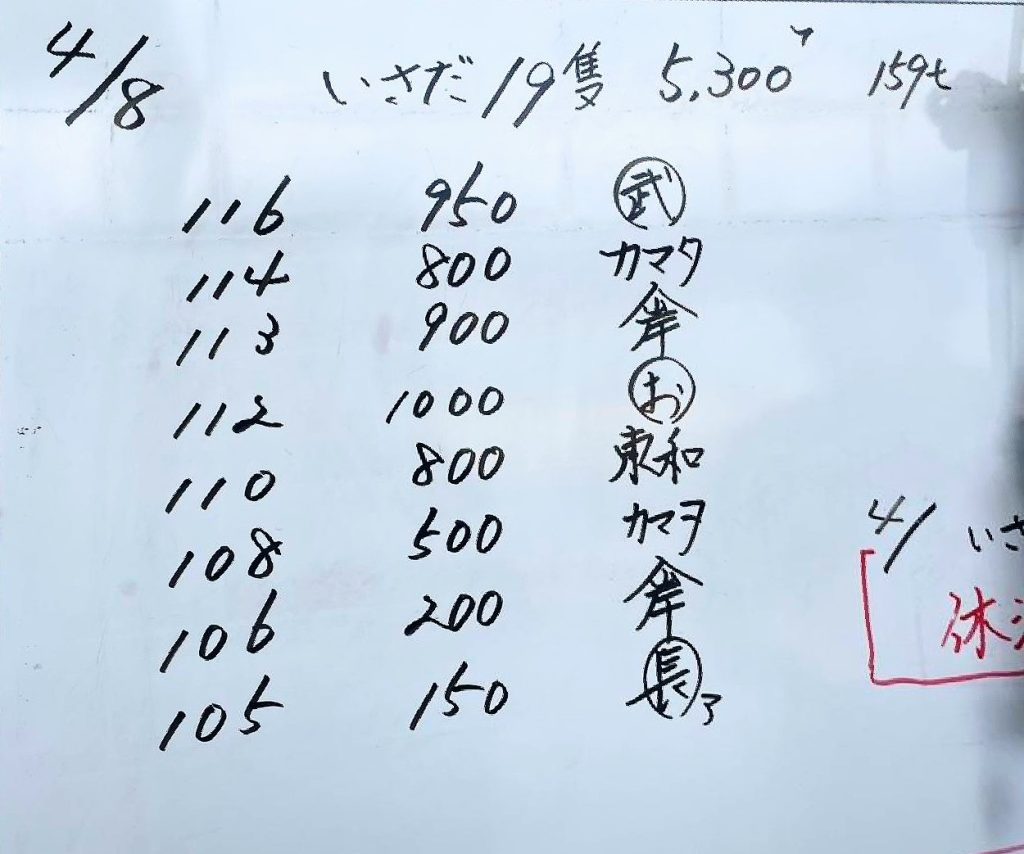 4/8 いさだ 19隻 5,300ヶ 159t
116 950 武
114 800 カマタ
113 900
112 1000 お
110 800 東和
108 500 カマヲ
106 200
105 150 長 了
4/ いさ
休